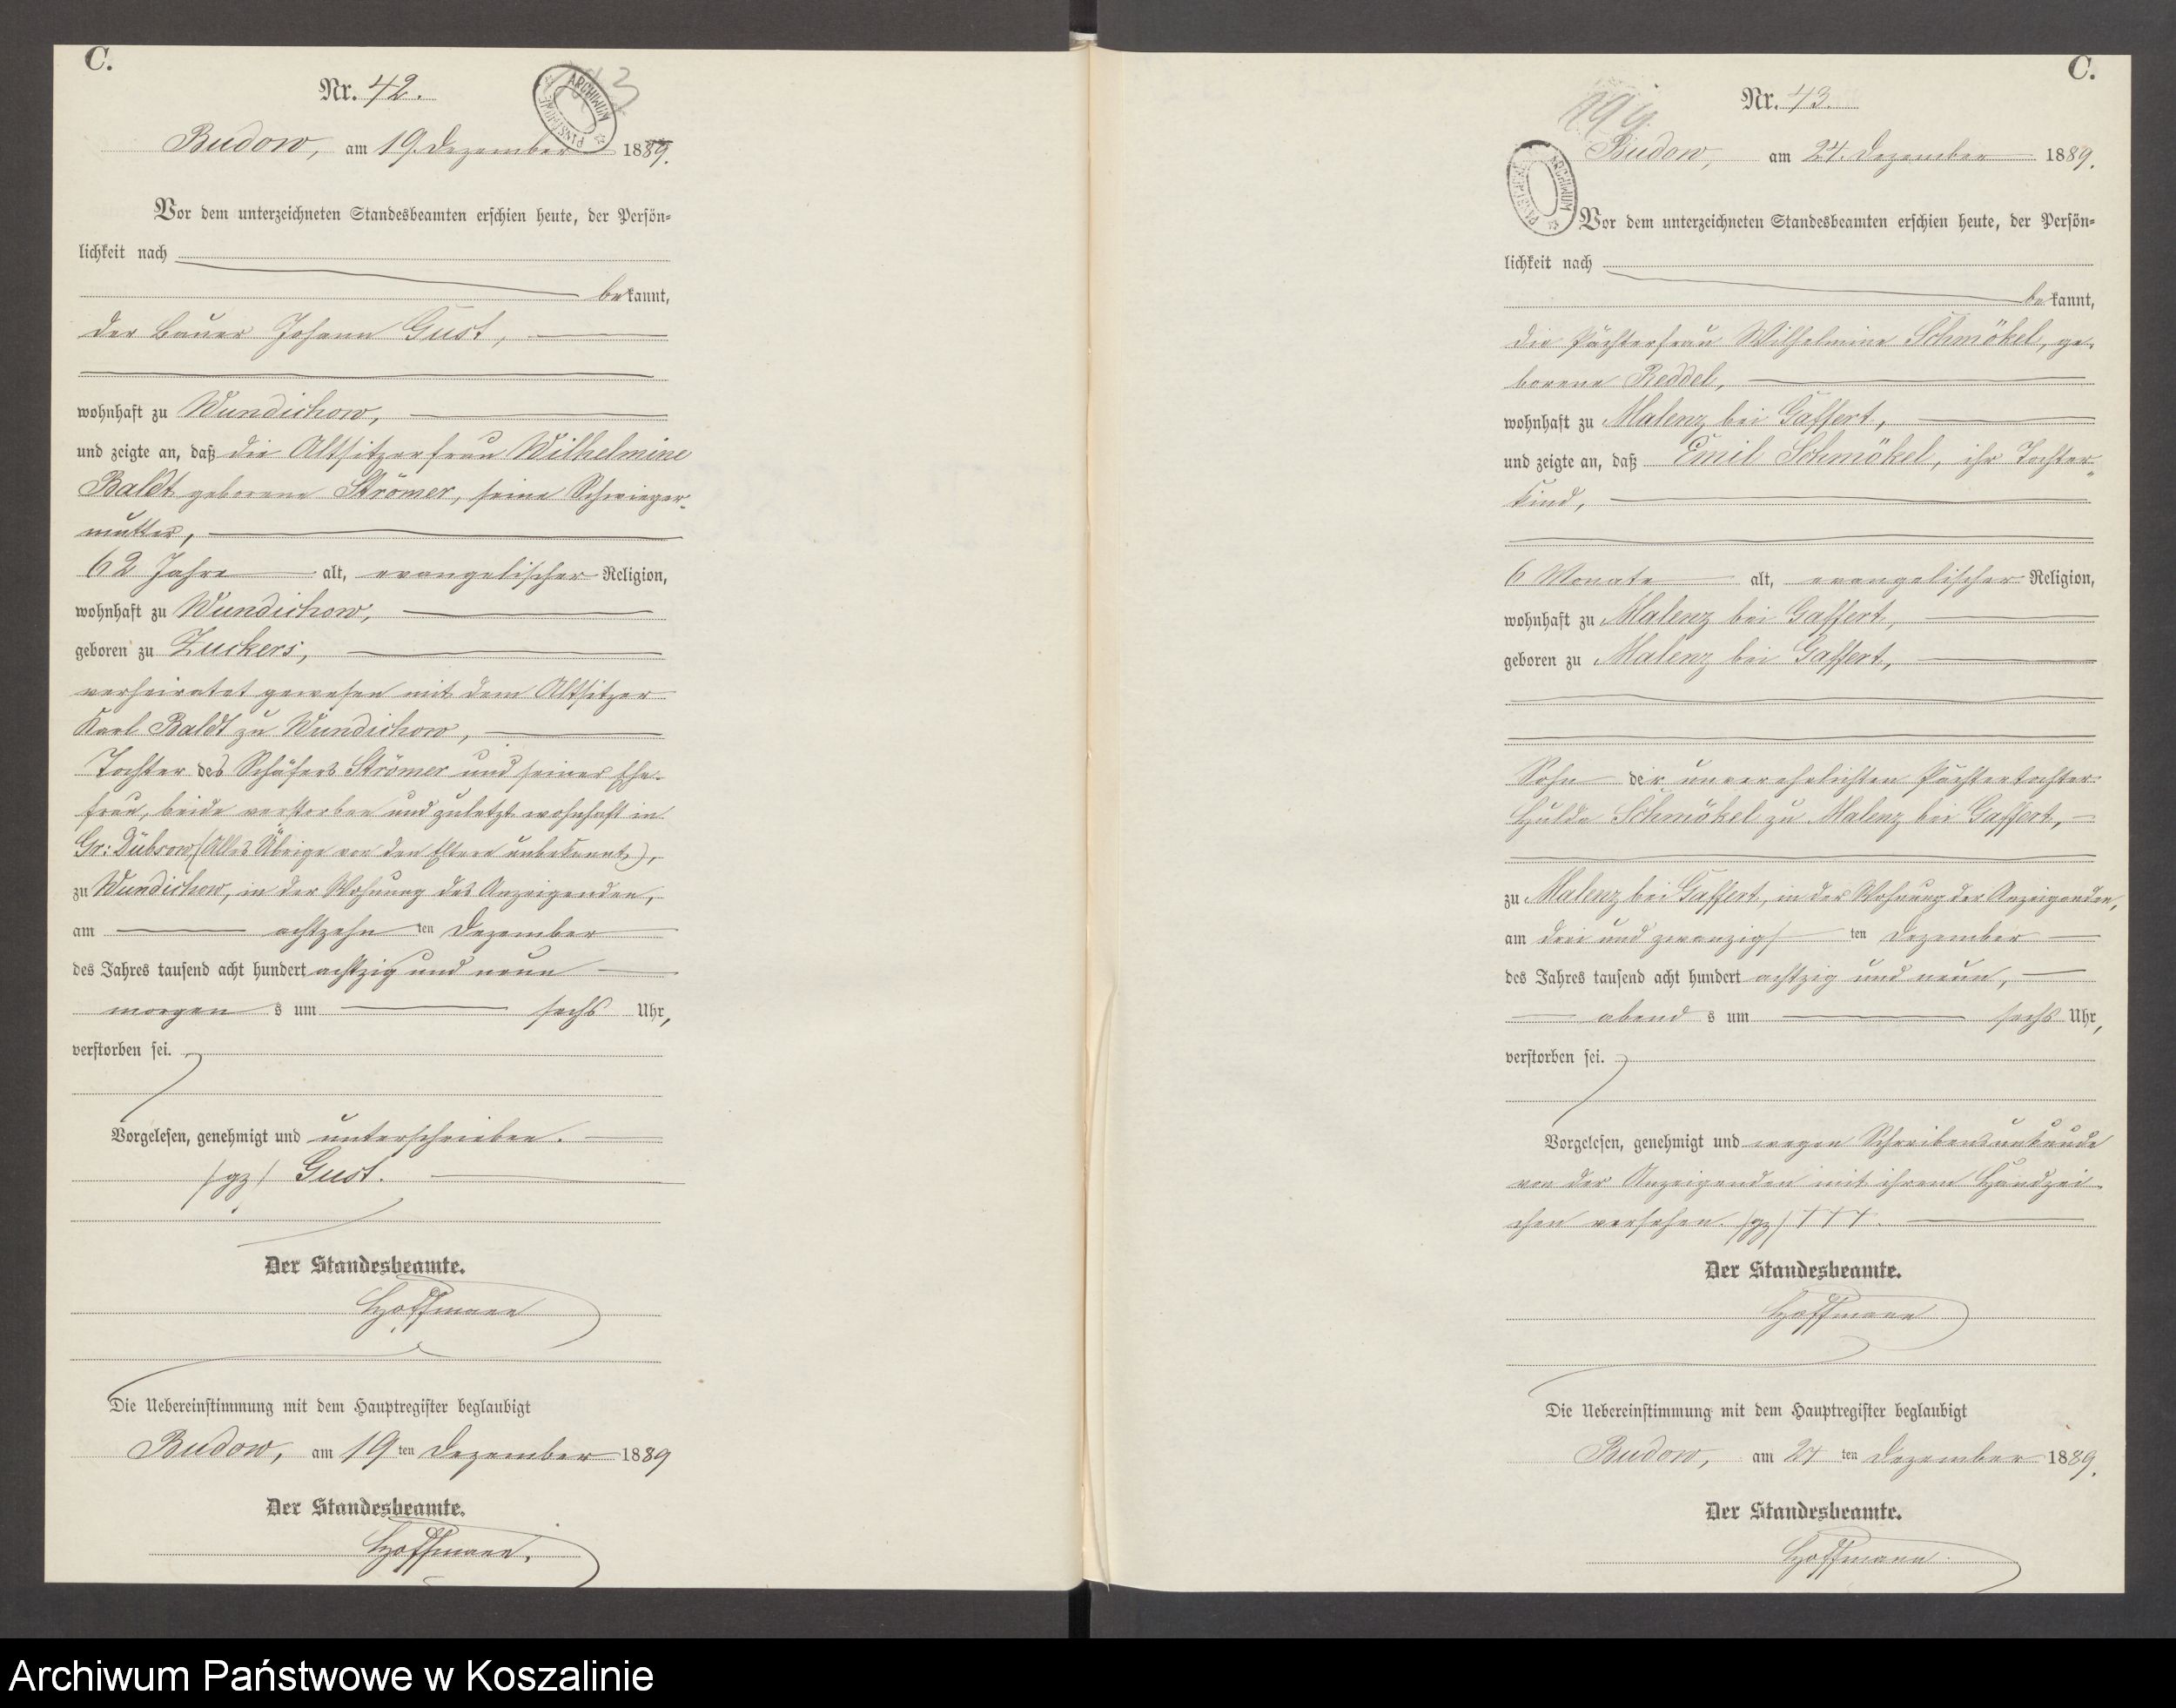 C.
Nr. 42.
ARCHIWUM PAŃSTWOWE
Budow, am 19. Dezember 1889.
Vor dem unterzeichneten Standesbeamten erschien heute, der Persön-
lichkeit nach
bekannt,
der Bauer Johann Gust,
wohnhaft zu Wundichow,
und zeigte an, daß die Altsitzerfrau Wilhelmine
Baldt geborene Strömer, seine Schwieger-
mutter,
62 Jahre alt, evangelischer Religion,
wohnhaft zu Wundichow,
geboren zu Zuckers,
verheiratet gewesen mit dem Altsitzer
Karl Baldt zu Wundichow,
Tochter des Schäfers Strömer und seiner Ehe-
frau, beide verstorben und zuletzt wohnhaft in
Gr: Dübsow (Alles Übrige von den Eltern unbekannt),
zu Wundichow, in der Wohnung des Anzeigenden,
am achtzehn ten Dezember
des Jahres tausend acht hundert achtzig und neun
morgen s um sechs Uhr,
verstorben sei.
Vorgelesen, genehmigt und unterschrieben.
/gz/ Gust.
Der Standesbeamte.
Hoffmann
Die Uebereinstimmung mit dem Hauptregister beglaubigt
Budow, am 19 ten Dezember 1889
Der Standesbeamte.
Hoffmann.
C.
Nr. 43.
Budow, am 24. Dezember 1889.
ARCHIWUM PAŃSTWOWE
Vor dem unterzeichneten Standesbeamten erschien heute, der Persön-
lichkeit nach
bekannt,
die Pächterfrau Wilhelmine Schmökel, ge-
borene Reddel,
wohnhaft zu Malenz bei Gaffert,
und zeigte an, daß Emil Schmökel, ihr Tochter-
kind,
6 Monate alt, evangelischer Religion,
wohnhaft zu Malenz bei Gaffert,
geboren zu Malenz bei Gaffert,
Sohn der unverehelichten Pächtertochter
Hulda Schmökel zu Malenz bei Gaffert,
zu Malenz bei Gaffert, in der Wohnung der Anzeigenden,
am drei und zwanzigs ten Dezember
des Jahres tausend acht hundert achtzig und neun,
abend s um sechs Uhr,
verstorben sei.
Vorgelesen, genehmigt und wegen Schreibensunkunde
von der Anzeigenden mit ihrem Handzei-
chen versehen. /gz/ +++.
Der Standesbeamte.
Hoffmann
Die Uebereinstimmung mit dem Hauptregister beglaubigt
Budow, am 24 ten Dezember 1889.
Der Standesbeamte.
Hoffmann
Archiwum Państwowe w Koszalinie